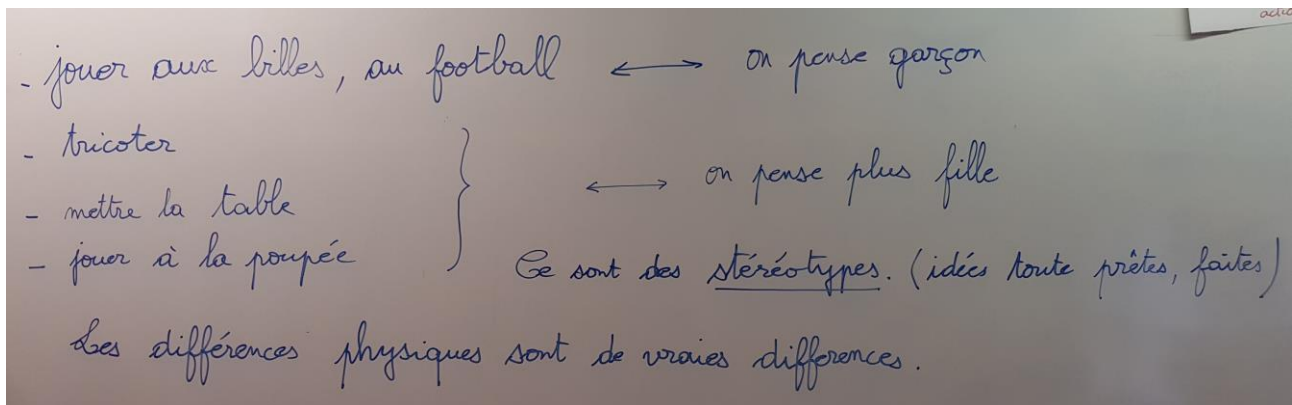 - jouer aux billes, au football ⟷ on pense garçon
- tricoter
- mettre la table } ⟷ on pense plus fille
- jouer à la poupée
Ce sont des stéréotypes. (idées toute prêtes, faites)
Les différences physiques sont de vraies differences.